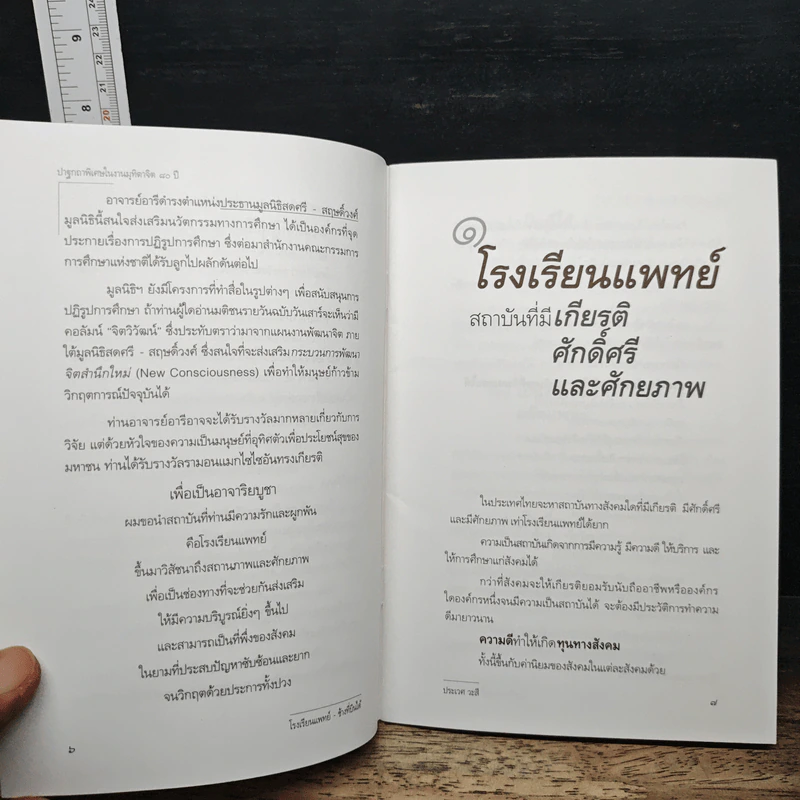 9
8
24
23
22
21
20
ปาฐกถาพิเศษในงานมุทิตาจิต ๘๐ ปี
อาจารย์อารีดำรงตำแหน่งประธานมูลนิธิสดศรี - สฤษดิ์วงศ์
มูลนิธินี้สนใจส่งเสริมนวัตกรรมทางการศึกษา ได้เป็นองค์กรที่จุด
ประกายเรื่องการปฏิรูปการศึกษา ซึ่งต่อมาสำนักงานคณะกรรมการ
การศึกษาแห่งชาติได้รับลูกไปผลักดันต่อไป
มูลนิธิฯ ยังมีโครงการที่ทำสื่อในรูปต่างๆ เพื่อสนับสนุนการ
ปฏิรูปการศึกษา ถ้าท่านผู้ใดอ่านมติชนรายวันฉบับวันเสาร์จะเห็นว่ามี
คอลัมน์ "จิตวิวัฒน์" ซึ่งประทับตราว่ามาจากแผนงานพัฒนาจิต ภาย
ใต้มูลนิธิสดศรี - สฤษดิ์วงศ์ ซึ่งสนใจที่จะส่งเสริมกระบวนการพัฒนา
จิตสำนึกใหม่ (New Consciousness) เพื่อทำให้มนุษย์ก้าวข้าม
วิกฤตการณ์ปัจจุบันได้
ท่านอาจารย์อารีอาจจะได้รับรางวัลมากหลายเกี่ยวกับการ
วิจัย แต่ด้วยหัวใจของความเป็นมนุษย์ที่อุทิศตัวเพื่อประโยชน์สุขของ
มหาชน ท่านได้รับรางวัลรามอนแมกไซไซอันทรงเกียรติ
เพื่อเป็นอาจาริยบูชา
ผมขอนำสถาบันที่ท่านมีความรักและผูกพัน
คือโรงเรียนแพทย์
ขึ้นมาวิสัชนาถึงสถานภาพและศักยภาพ
เพื่อเป็นช่องทางที่จะช่วยกันส่งเสริม
ให้มีความบริบูรณ์ยิ่งๆ ขึ้นไป
และสามารถเป็นที่พึ่งของสังคม
ในยามที่ประสบปัญหาซับซ้อนและยาก
จนวิกฤตด้วยประการทั้งปวง
โรงเรียนแพทย์ - ช้างที่บินได้
๖
๑
โรงเรียนแพทย์
สถาบันที่มีเกียรติ
ศักดิ์ศรี
และศักยภาพ
ในประเทศไทยจะหาสถาบันทางสังคมใดที่มีเกียรติ มีศักดิ์ศรี
และมีศักยภาพ เท่าโรงเรียนแพทย์ได้ยาก
ความเป็นสถาบันเกิดจากการมีความรู้ มีความดี ให้บริการ และ
ให้การศึกษาแก่สังคมได้
กว่าที่สังคมจะให้เกียรติยอมรับนับถืออาชีพหรือองค์กร
ใดองค์กรหนึ่งจนมีความเป็นสถาบันได้ จะต้องมีประวัติการทำความ
ดีมายาวนาน
ความดีทำให้เกิดทุนทางสังคม
ทั้งนี้ขึ้นกับค่านิยมของสังคมในแต่ละสังคมด้วย
ประเวศ วะสี
๗